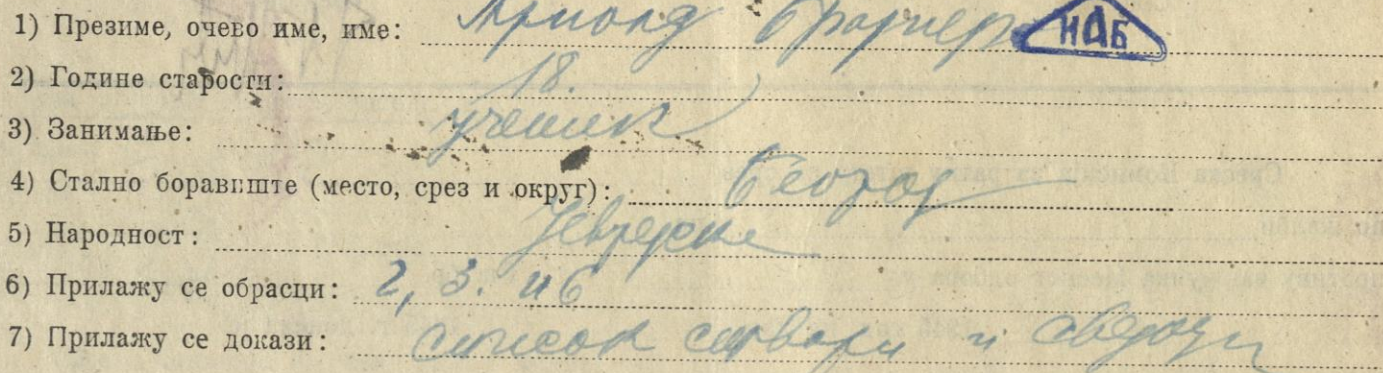 1) Презиме, очево име, име: Арнолд НАБ
2) Године старости: 18.
3) Занимање: ученик
4) Стално боравиште (место, срез и округ): Београд
5) Народност: Јеврејске
6) Прилажу се обрасци: 2, 3. и 6
7) Прилажу се докази: списак ствари и сведоци